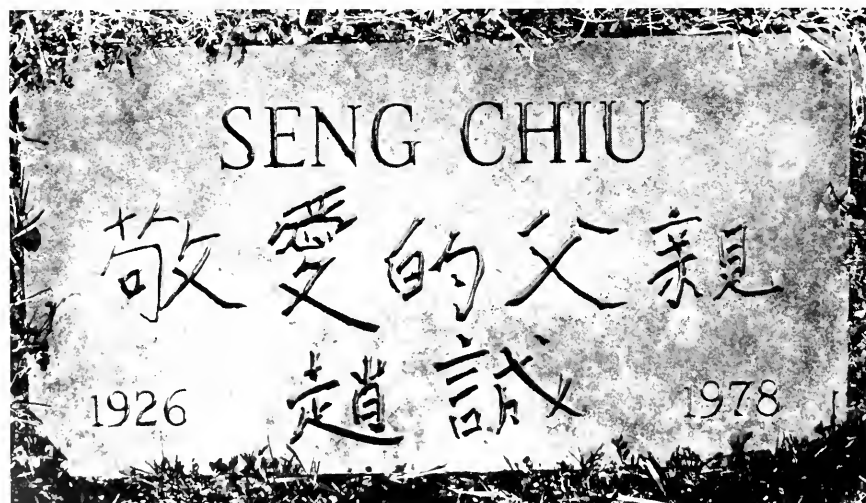 SENG CHIU
敬愛的父親
趙誠
1926 1978